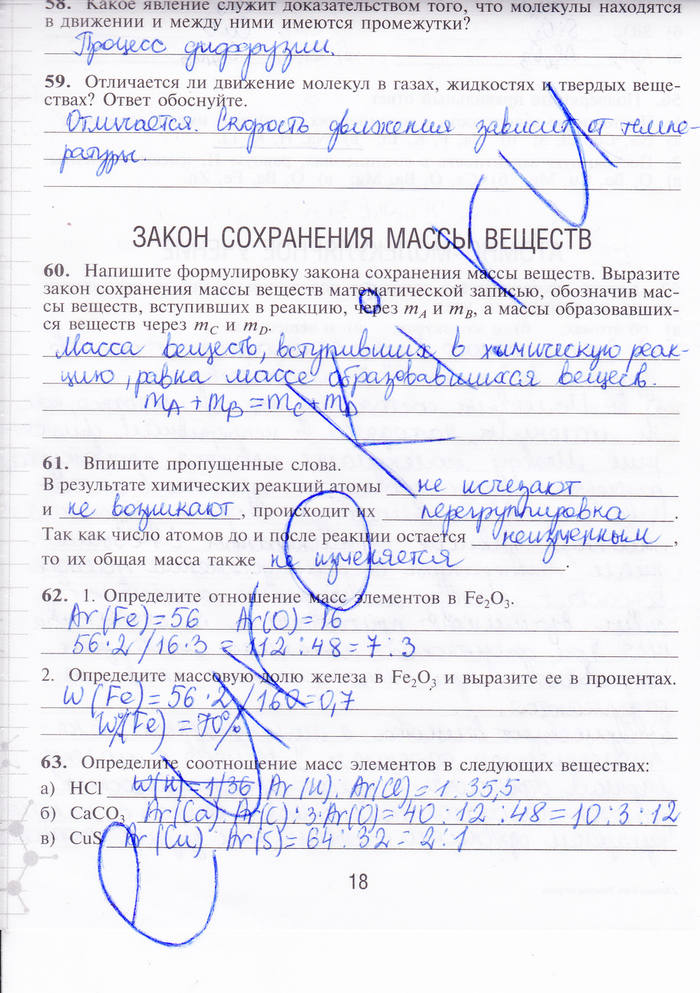 58. Какое явление служит доказательством того, что молекулы находятся
в движении и между ними имеются промежутки?
Процесс диффузии.
59. Отличается ли движение молекул в газах, жидкостях и твердых веще-
ствах? Ответ обоснуйте.
Отличается. Скорость движения зависит от темпе-
ратуры.
ЗАКОН СОХРАНЕНИЯ МАССЫ ВЕЩЕСТВ
60. Напишите формулировку закона сохранения массы веществ. Выразите
закон сохранения массы веществ математической записью, обозначив мас-
сы веществ, вступивших в реакцию, через mA и mB, а массы образовавших-
ся веществ через mC и mD.
Масса веществ, вступивших в химическую реак-
цию, равна массе образовавшихся веществ.
mA + mB = mC + mD
61. Впишите пропущенные слова.
В результате химических реакций атомы не исчезают
и не возникают, происходит их перегруппировка.
Так как число атомов до и после реакции остается неизменным,
то их общая масса также не изменяется.
62. 1. Определите отношение масс элементов в Fe₂O₃.
Ar(Fe)=56 Ar(O)=16
56·2/16·3 = 112:48=7:3
2. Определите массовую долю железа в Fe₂O₃ и выразите ее в процентах.
W(Fe)=56·2/160=0,7
W%(Fe)=70%
63. Определите соотношение масс элементов в следующих веществах:
а) HCl W(H)=1/36 Ar(H):Ar(Cl)=1:35,5
б) CaCO₃ Ar(Ca):Ar(C):3·Ar(O)=40:12:48=10:3:12
в) CuS Ar(Cu):Ar(S)=64:32=2:1
18